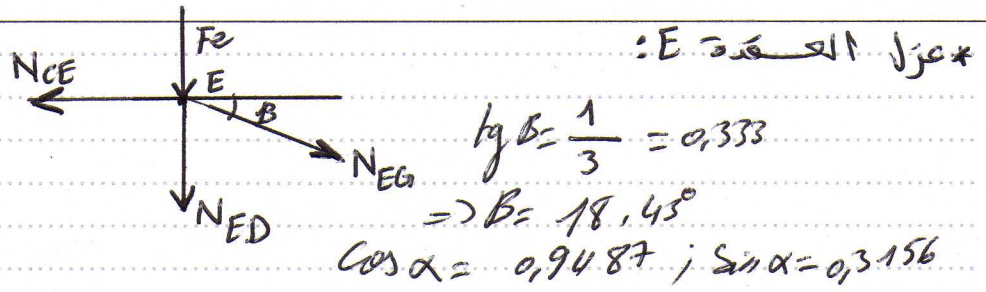 * عزل العقدة E:
Fe
NCE
E
B
NEG
NED
tg B = 1/3 = 0,333
=> B = 18,43°
Cos α = 0,9487 ; Sin α = 0,3156